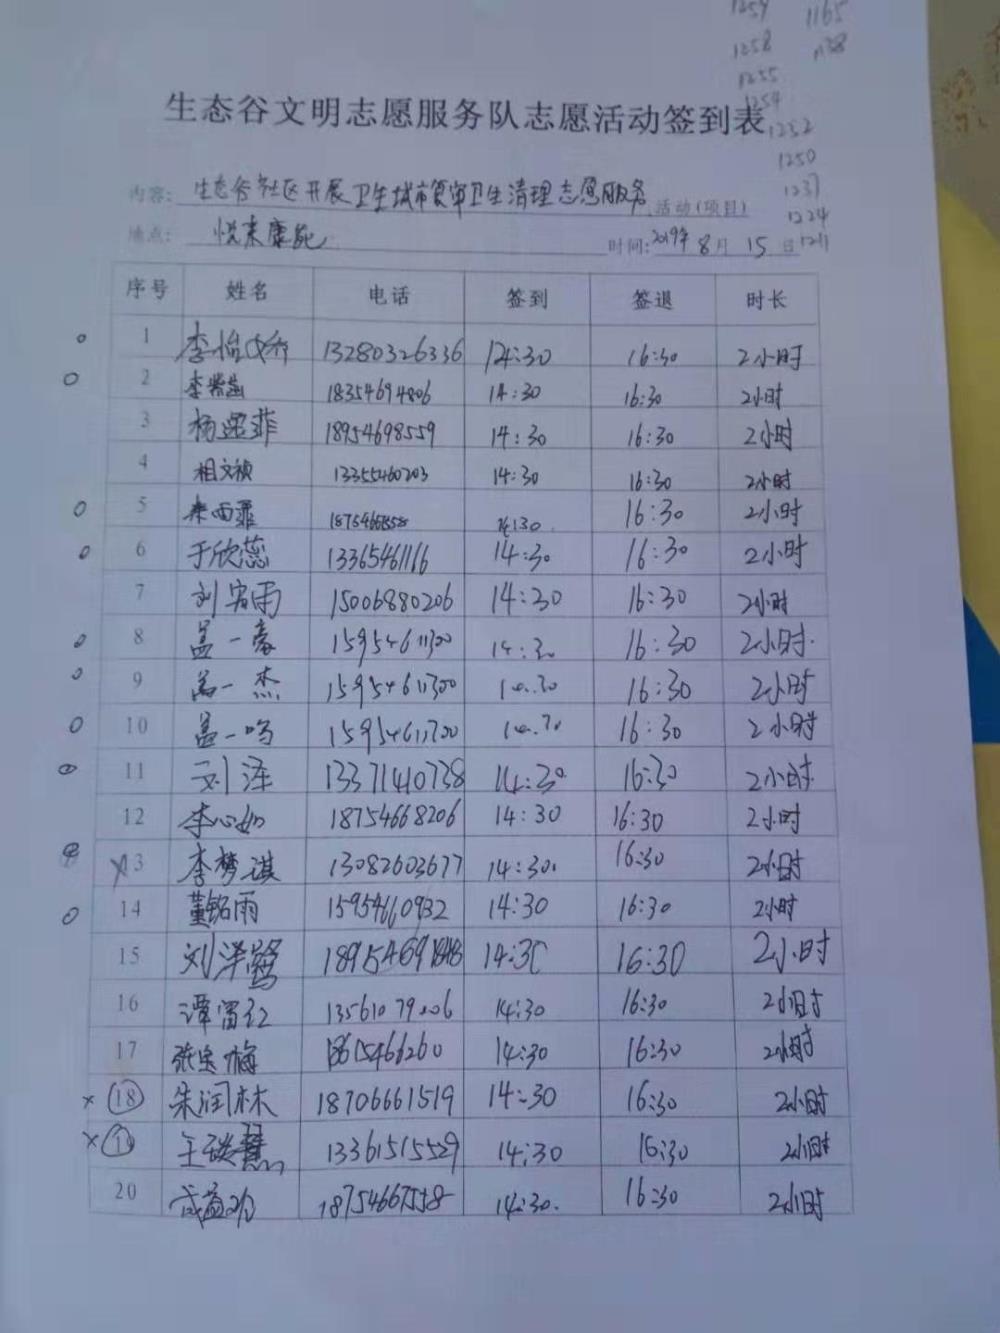 1259 1165
1258 1138
1255
1254
生态谷文明志愿服务队志愿活动签到表
1252
1250
1237
1224
1211
内容: 生态谷社区开展卫生城市复审卫生清理志愿服务 活动(项目)
地点: 悦来康苑 时间: 2019年8月15日
序号 姓名 电话 签到 签退 时长
1 李怡 13280326336 14:30 16:30 2小时
2 李 18354694806 14:30 16:30 2小时
3 杨 菲 18954698559 14:30 16:30 2小时
4 相文祯 13355460203 14:30 16:30 2小时
5 14:30 16:30 2小时
6 于欣蕊 13365461166 14:30 16:30 2小时
7 刘 雨 15006880206 14:30 16:30 2小时
8 盖一 15954611300 14:30 16:30 2小时
9 盖一杰 15954611300 14:30 16:30 2小时
10 盖一鸣 15954611300 14:30 16:30 2小时
11 刘泽 13371410738 14:30 16:30 2小时
12 李心如 18754668206 14:30 16:30 2小时
13 李梦琪 13082603677 14:30 16:30 2小时
14 董铭雨 15954660932 14:30 16:30 2小时
15 刘洋鹭 14:30 16:30 2小时
16 谭 红 13561079006 14:30 16:30 2小时
17 张宝梅 18615466260 14:30 16:30 2小时
× 18 朱润林 18706661519 14:30 16:30 2小时
× 王 慧 13361515529 14:30 16:30 2小时
20 18754667558 14:30 16:30 2小时